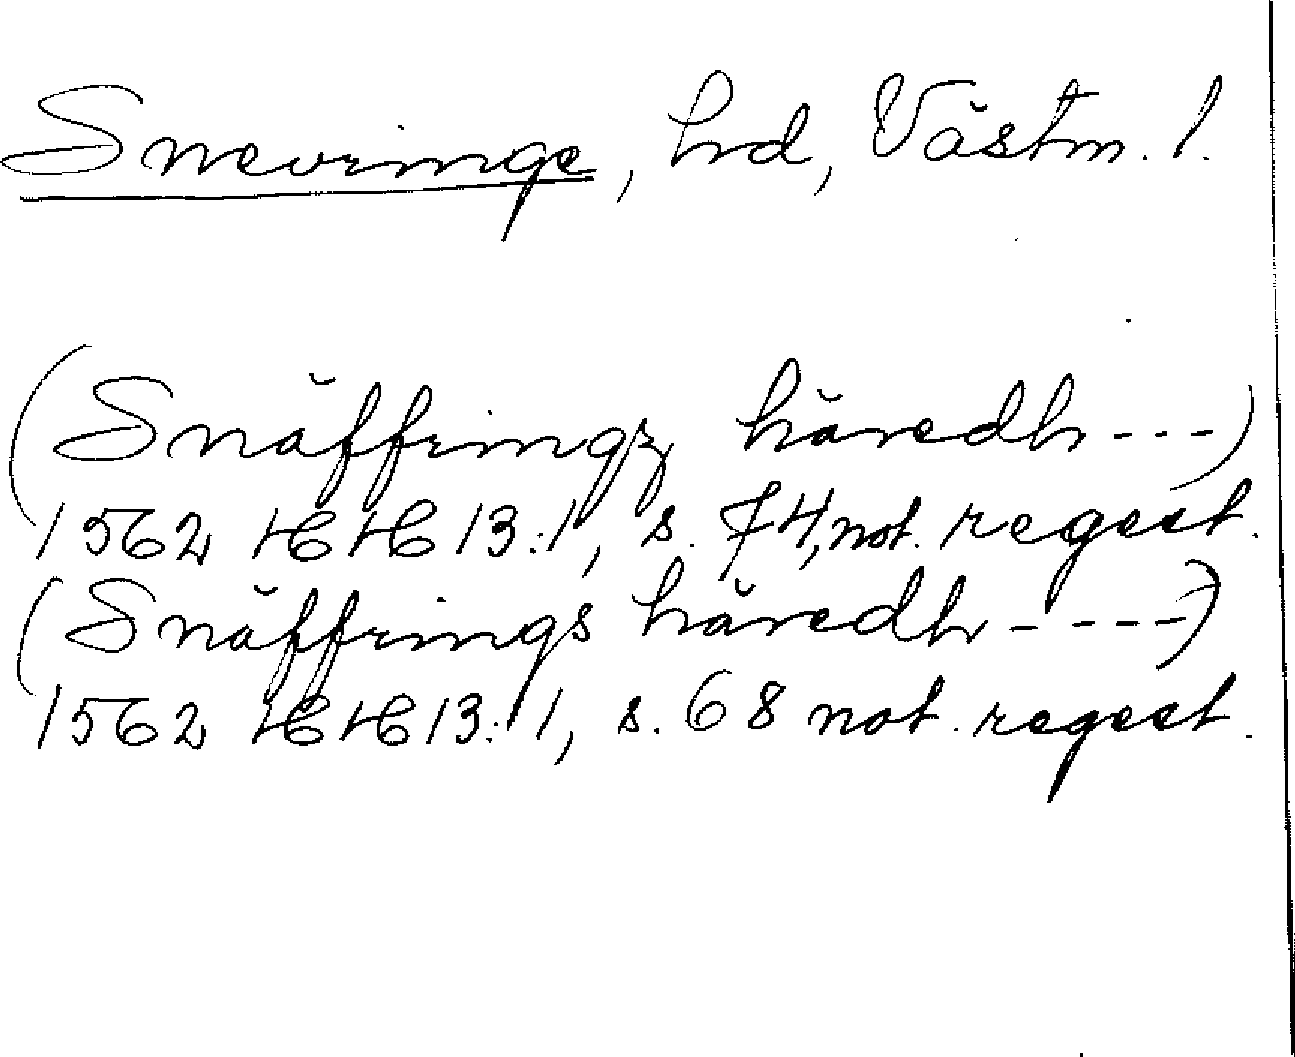 Snevringe, hrd, Västm. l.
(Snäffringz häredh ---)
1562 HH 13:1, s. 74, not. regest.
(Snäffrings häredh ----)
1562 HH 13:1, s. 68 not. regest.